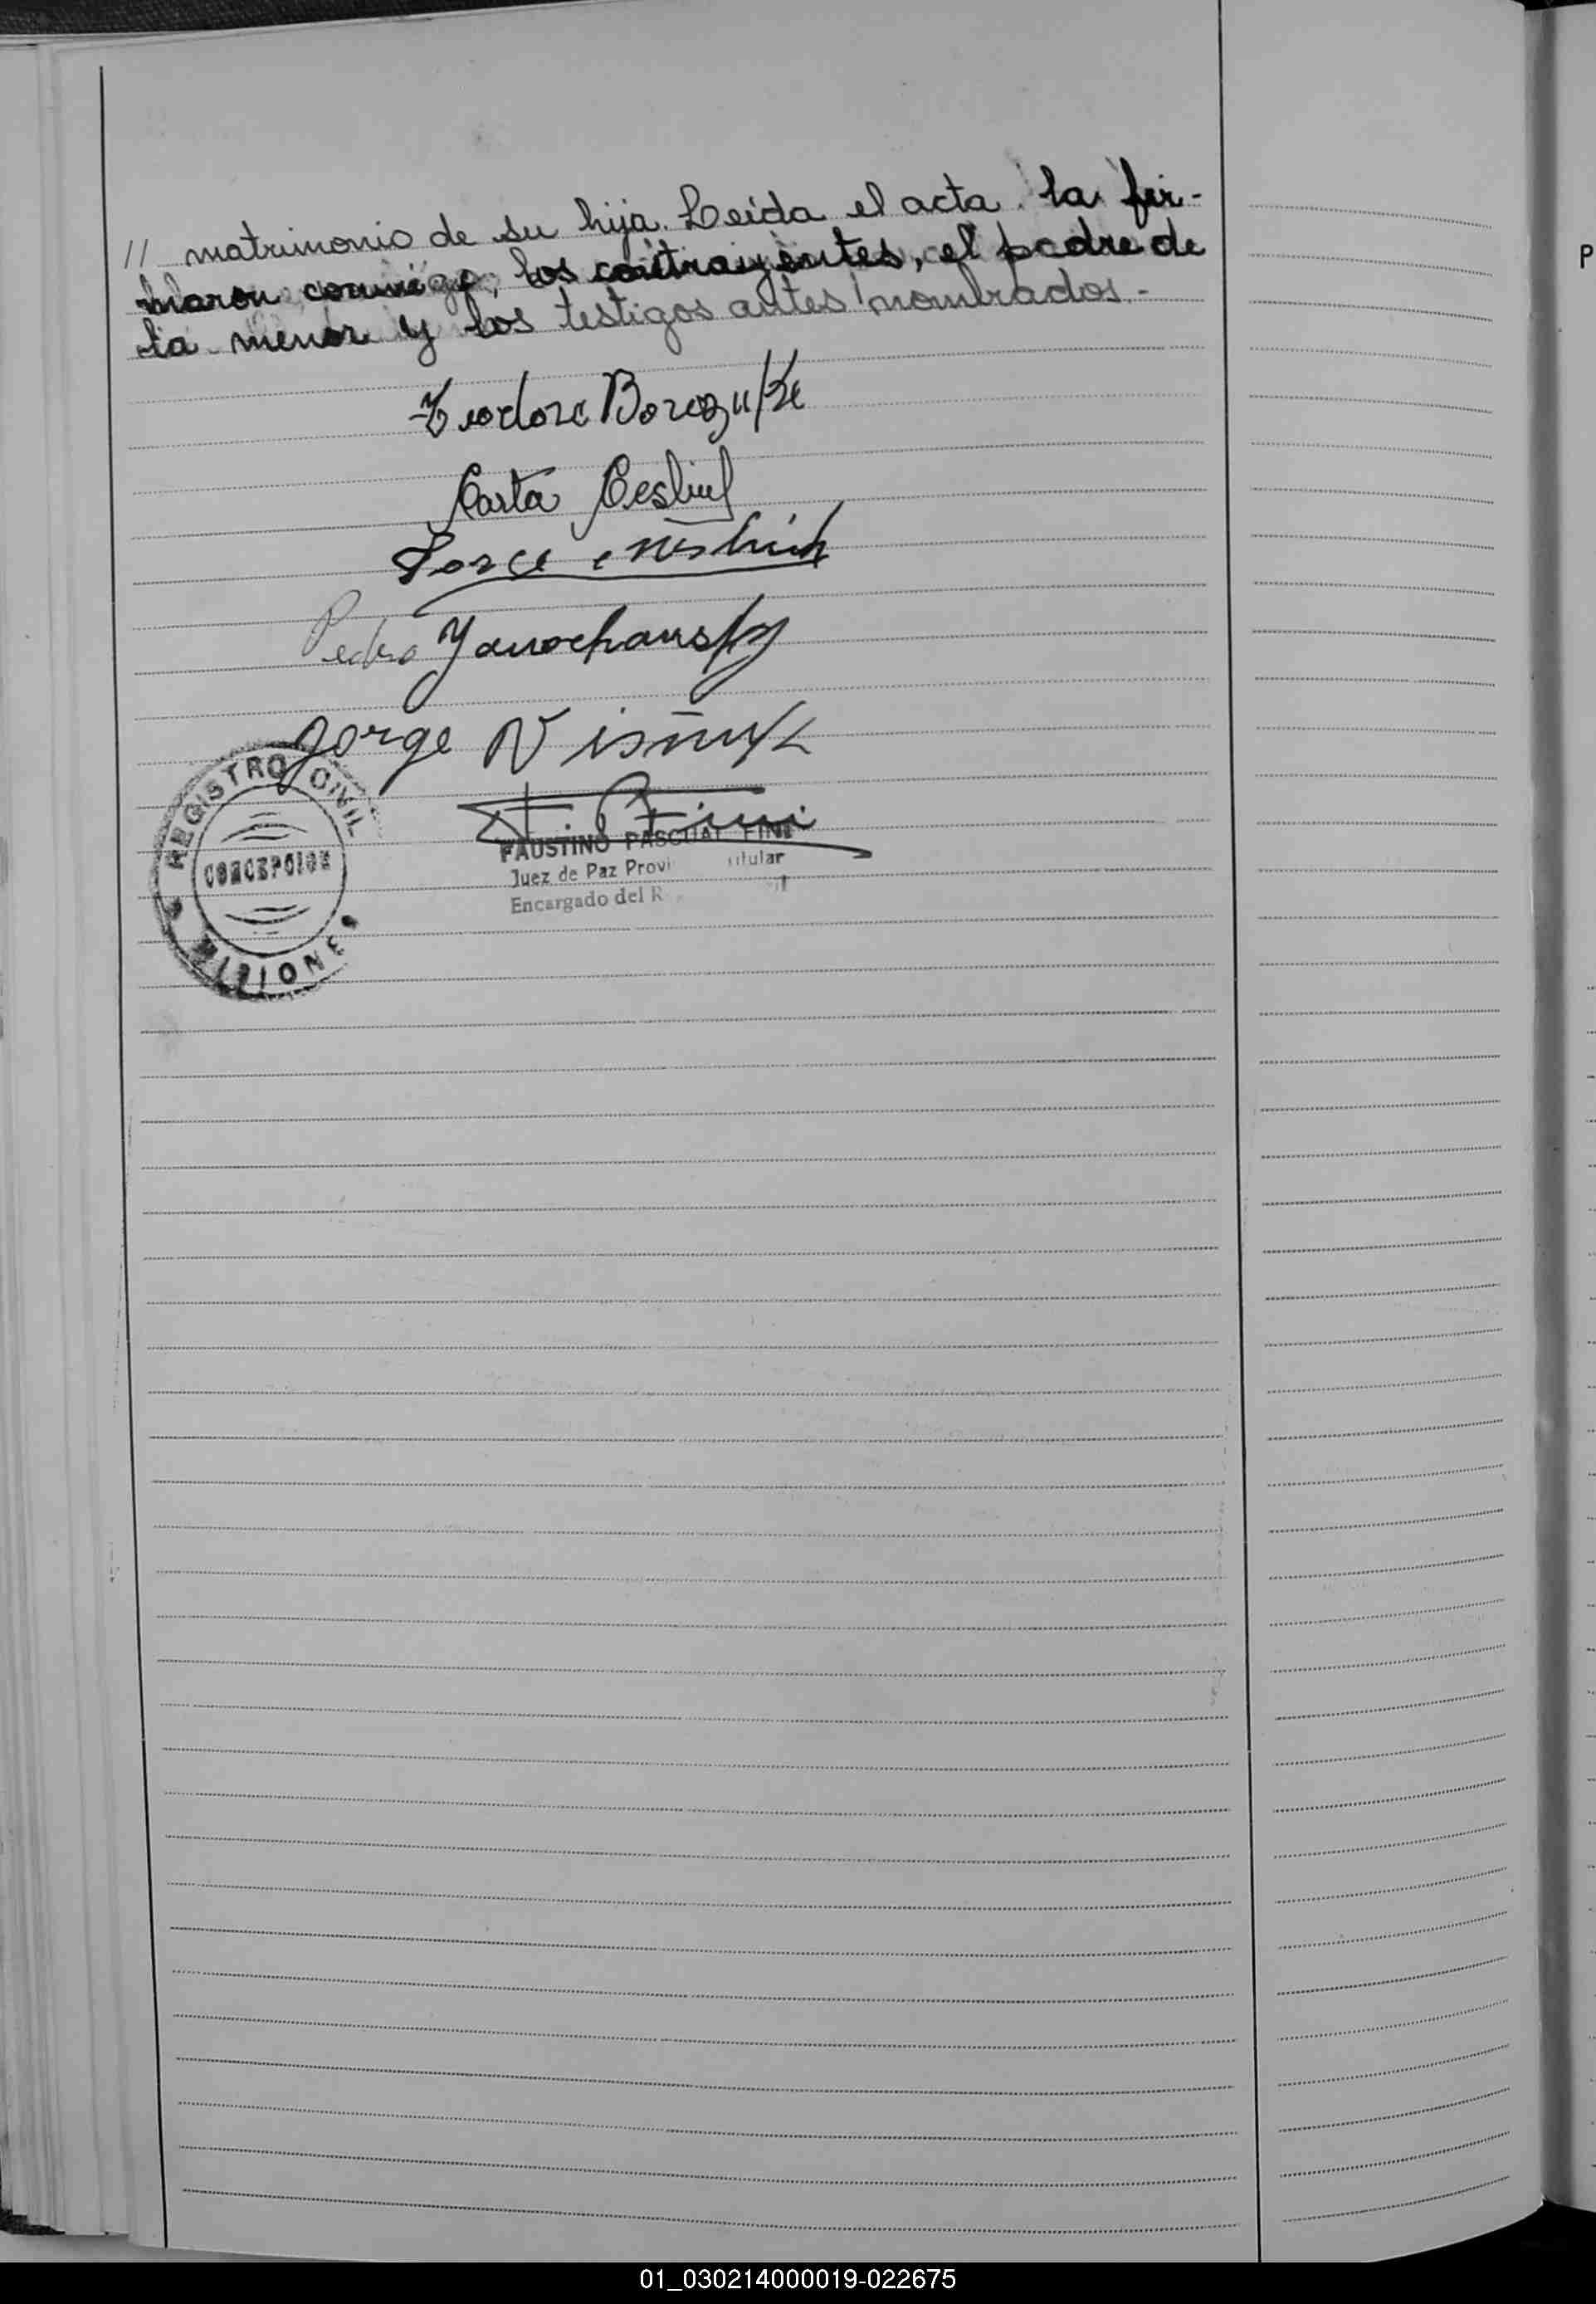 // matrimonio de su hija. Leída el acta la fir-
maron conmigo, los contrayentes, el padre de
la menor y los testigos antes nombrados.-
Pedro Yanochansky
Jorge
REGISTRO CIVIL
CONCEPCION
MISIONES
FAUSTINO PASCUAL FINI
Juez de Paz Provi itular
Encargado del R
P
01_030214000019-022675